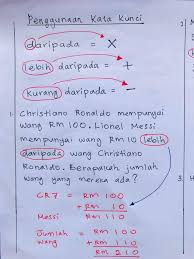 Penggunaan Kata Kunci
daripada = ×
lebih daripada = +
kurang daripada = -
1. Christiano Ronaldo mempunyai
wang RM 100. Lionel Messi
mempunyai wang RM 10 lebih
daripada wang Christiano
Ronaldo. Berapakah jumlah
wang yang mereka ada?
CR7 = RM 100
+ RM 10
Messi RM 110
Jumlah = RM 100
wang + RM 110
RM 210